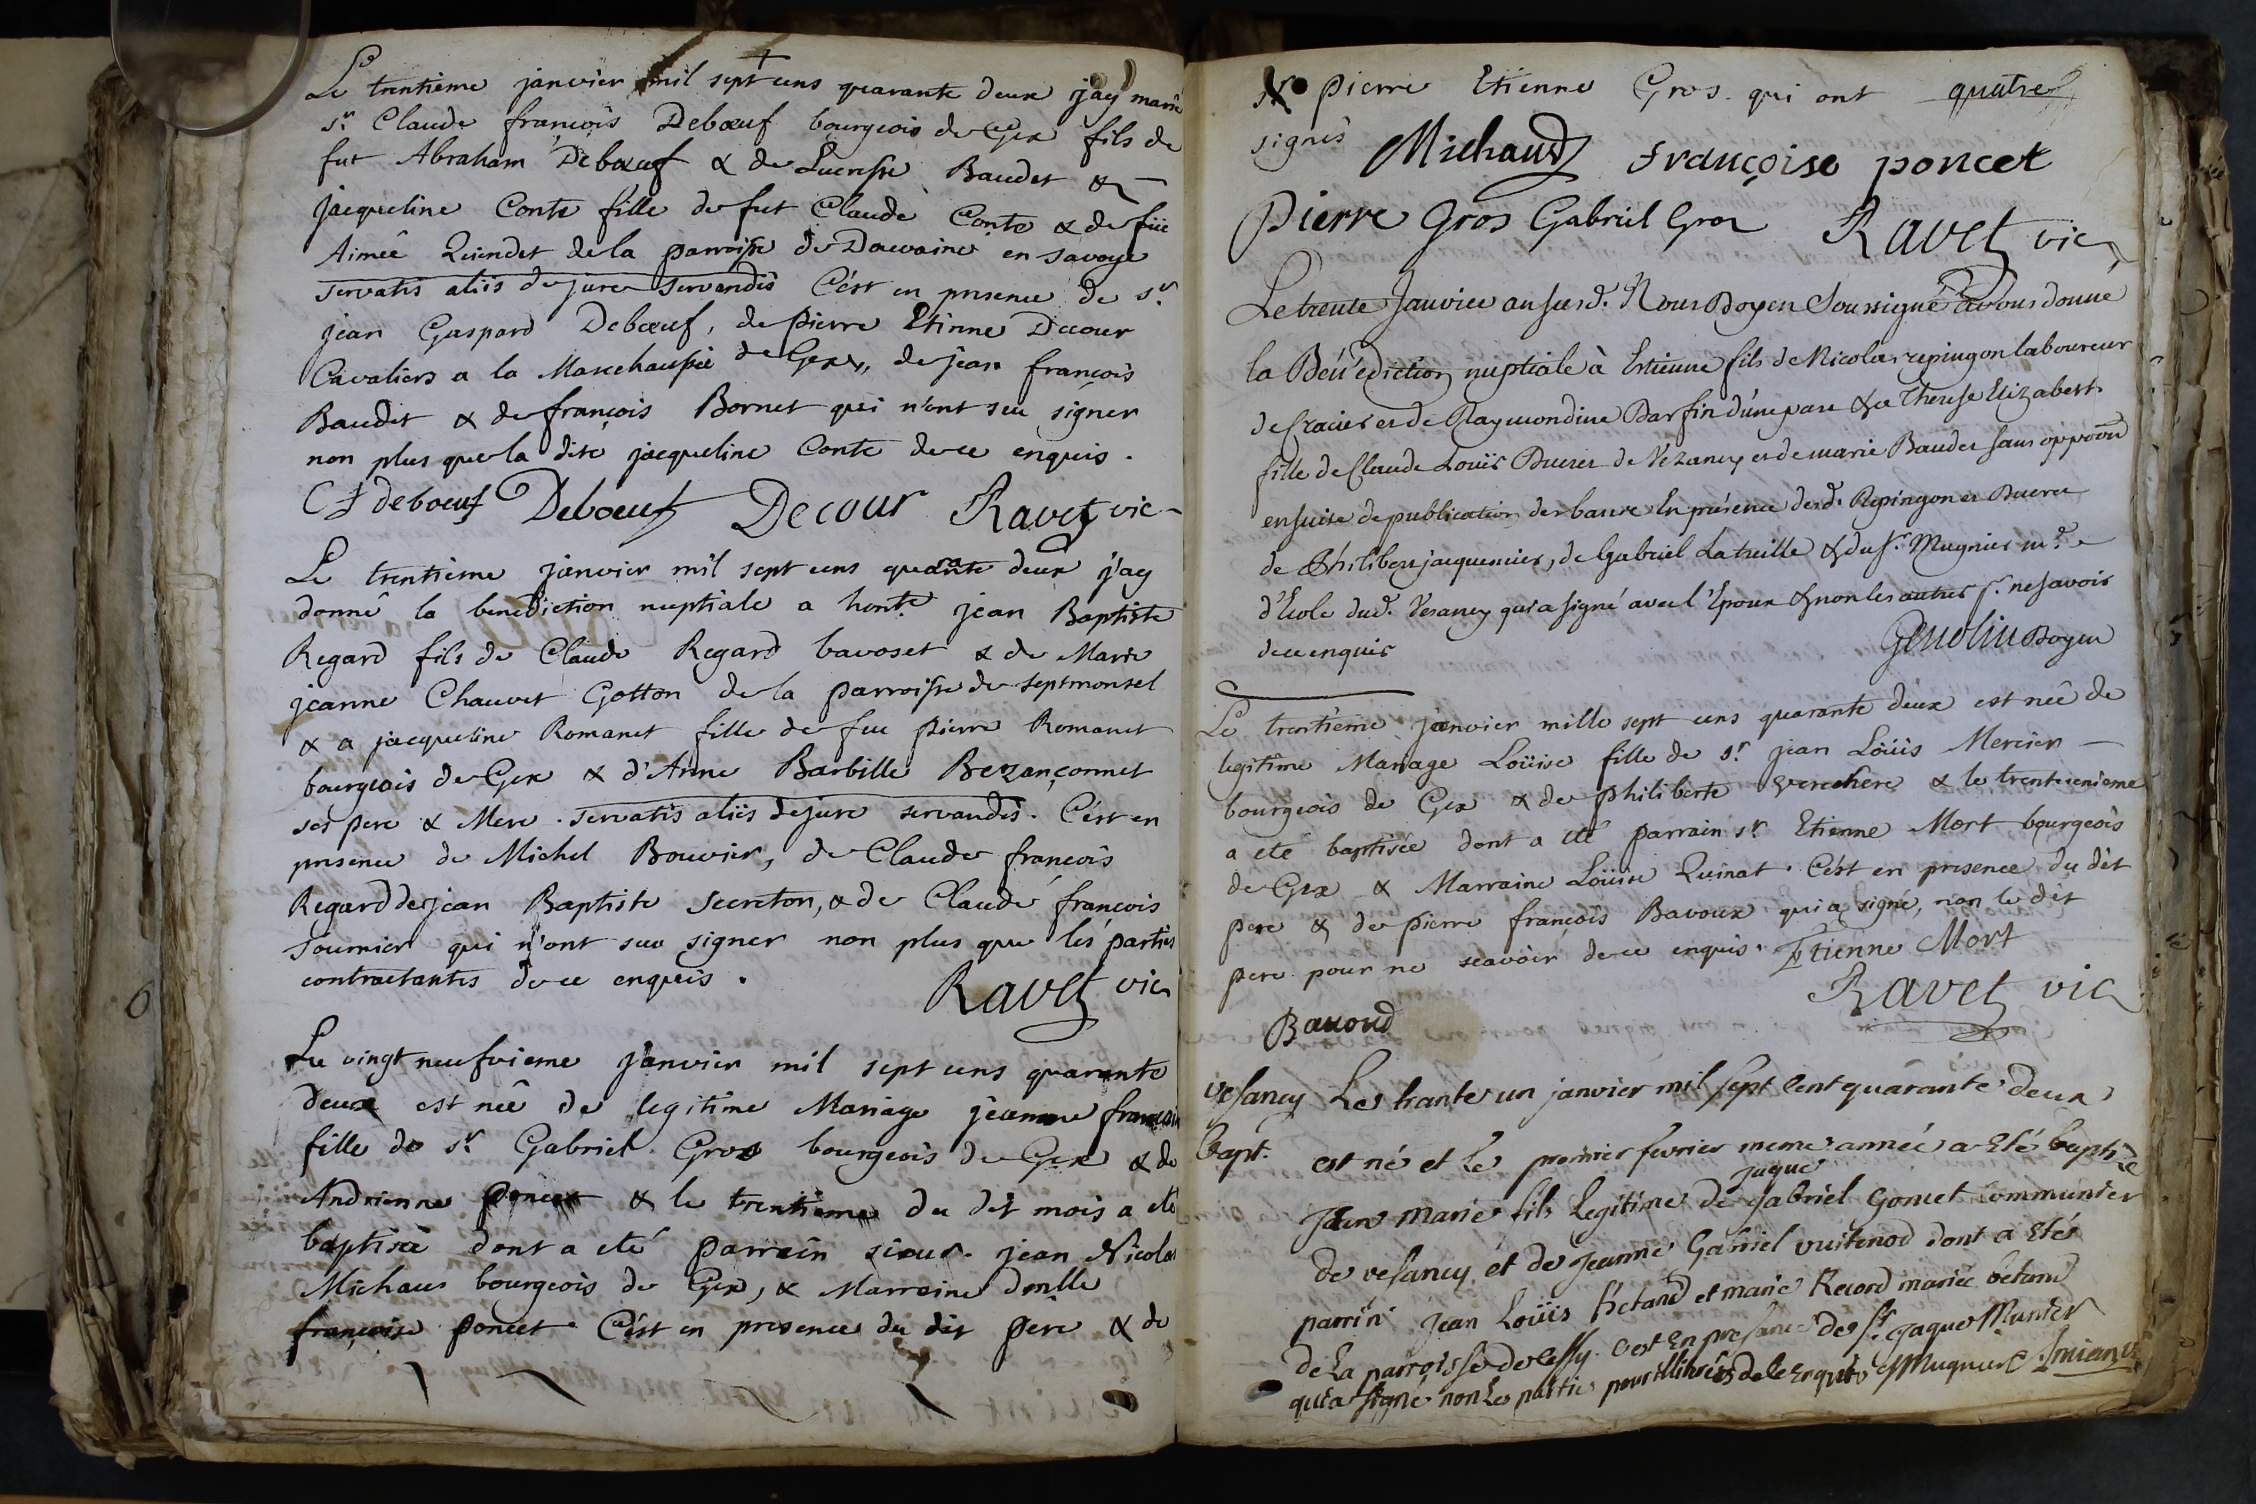 Le trentième janvier mil sept cens quarante deux j'ay marié
sr. Claude françois Debœuf bourgeois de Gex fils de
fut Abraham Debœuf & de Lucresse Baudet &
jacqueline Conte fille de fut Claude Conte & de füe
Aimée Quendet de la parroisse de Douvaine en savoye
servatis aliis de jure servandis C'est en presence de sr.
jean Gaspard Debœuf, de pierre Etienne Decour
Cavaliers a la Marechaussée de Gex, de jean françois
Baudet & de françois Bornet qui n'ont seu signer
non plus que la dite jacqueline Conte de ce enquis.
Cf debœuf Debœuf Decour Ravet vic
Le trentieme janvier mil sept cens quarante deux j'ay
donné la benediction nuptiale a honte. jean Baptiste
Regard fils de Claude Regard bavoset & de Marie
jeanne Chauvet Gotton de la parroisse de septmonsel
& a jacqueline Romanet fille de feu pierre Romanet
bourgeois de Gex & d'Anne Barbille Bezançonnet
ses pere & Mere. servatis aliis de jure servandis. C'est en
presence de Michel Bouvier, de Claude françois
Regard de jean Baptiste Secreton, & de Claude françois
fournier qui n'ont seu signer non plus que les parties
contractantes de ce enquis.
Ravet vic
Le vingt neufvieme janvier mil sept cens quarante
deux est née de legitime Mariage jeanne françoise
fille de sr. Gabriel Gros bourgeois de Gex & de
Andrienne poncet & le trentieme du dit mois a eté
baptisée dont a eté parrain sieur jean Nicolas
Michaus bourgeois de Gex, & Marraine donlle
françoise poncet C'est en presence du dit père & de
pierre Etienne Gros qui ont quatre
signés Michaud françoise poncet
Pierre Gros Gabriel Gros Ravet vic
Le trente Janvier an susd. Nous Doyen Soussigné avons donné
la Bénédiction nuptiale à Estienne fils de Nicolas repingon laboureur
de Cracier et de Raymondine Darfin d'une part & a Therese Elizabeth
fille de Claude Louis Bueret de Vézancy et de marie Baudet sans opposon
ensuite de publication des bancs En présence desd. Repingon et Bueret
de Philibert jacquemier, de Gabriel Latreille & du sr. Mugnier m.e
d'Ecole dud. Vesancy qui a signé avec l'Epoux & non les autres p. ne savoir
de ce enquis Genolin Doyen
Le trentième janvier mille sept cens quarante deux est née de
legitime Mariage Loüise fille de sr. jean Loüis Mercier
bourgeois de Gex & de philiberte Verchere & le trenteunieme
a eté baptisée dont a eté parrain sr Etienne Mort bourgeois
de Gex & Marraine Loüise Quinat. C'est en presence du dit
pere & de pierre françois Bavoux qui a signé, non le dit
pere pour ne scavoir de ce enquis. Etienne Mort
Ravet vic
Bauoud
vesancy Le trante un janvier mil sept cent quarante deux
bapt. est né et le premier fevrier meme année a Eté baptisé
jaque
Jean marie fils legitime de gabriel gonet communier
de vesancy et de jeanne Gabriel vuitenod dont a Etés
parrin Jean Loüis betand et marie Record mariée betand
de La parroisse de cessy. c'est En presance de sr. jaque Munier
qui a signé non Les partie pour illitérés de ce Enquis Mugnier